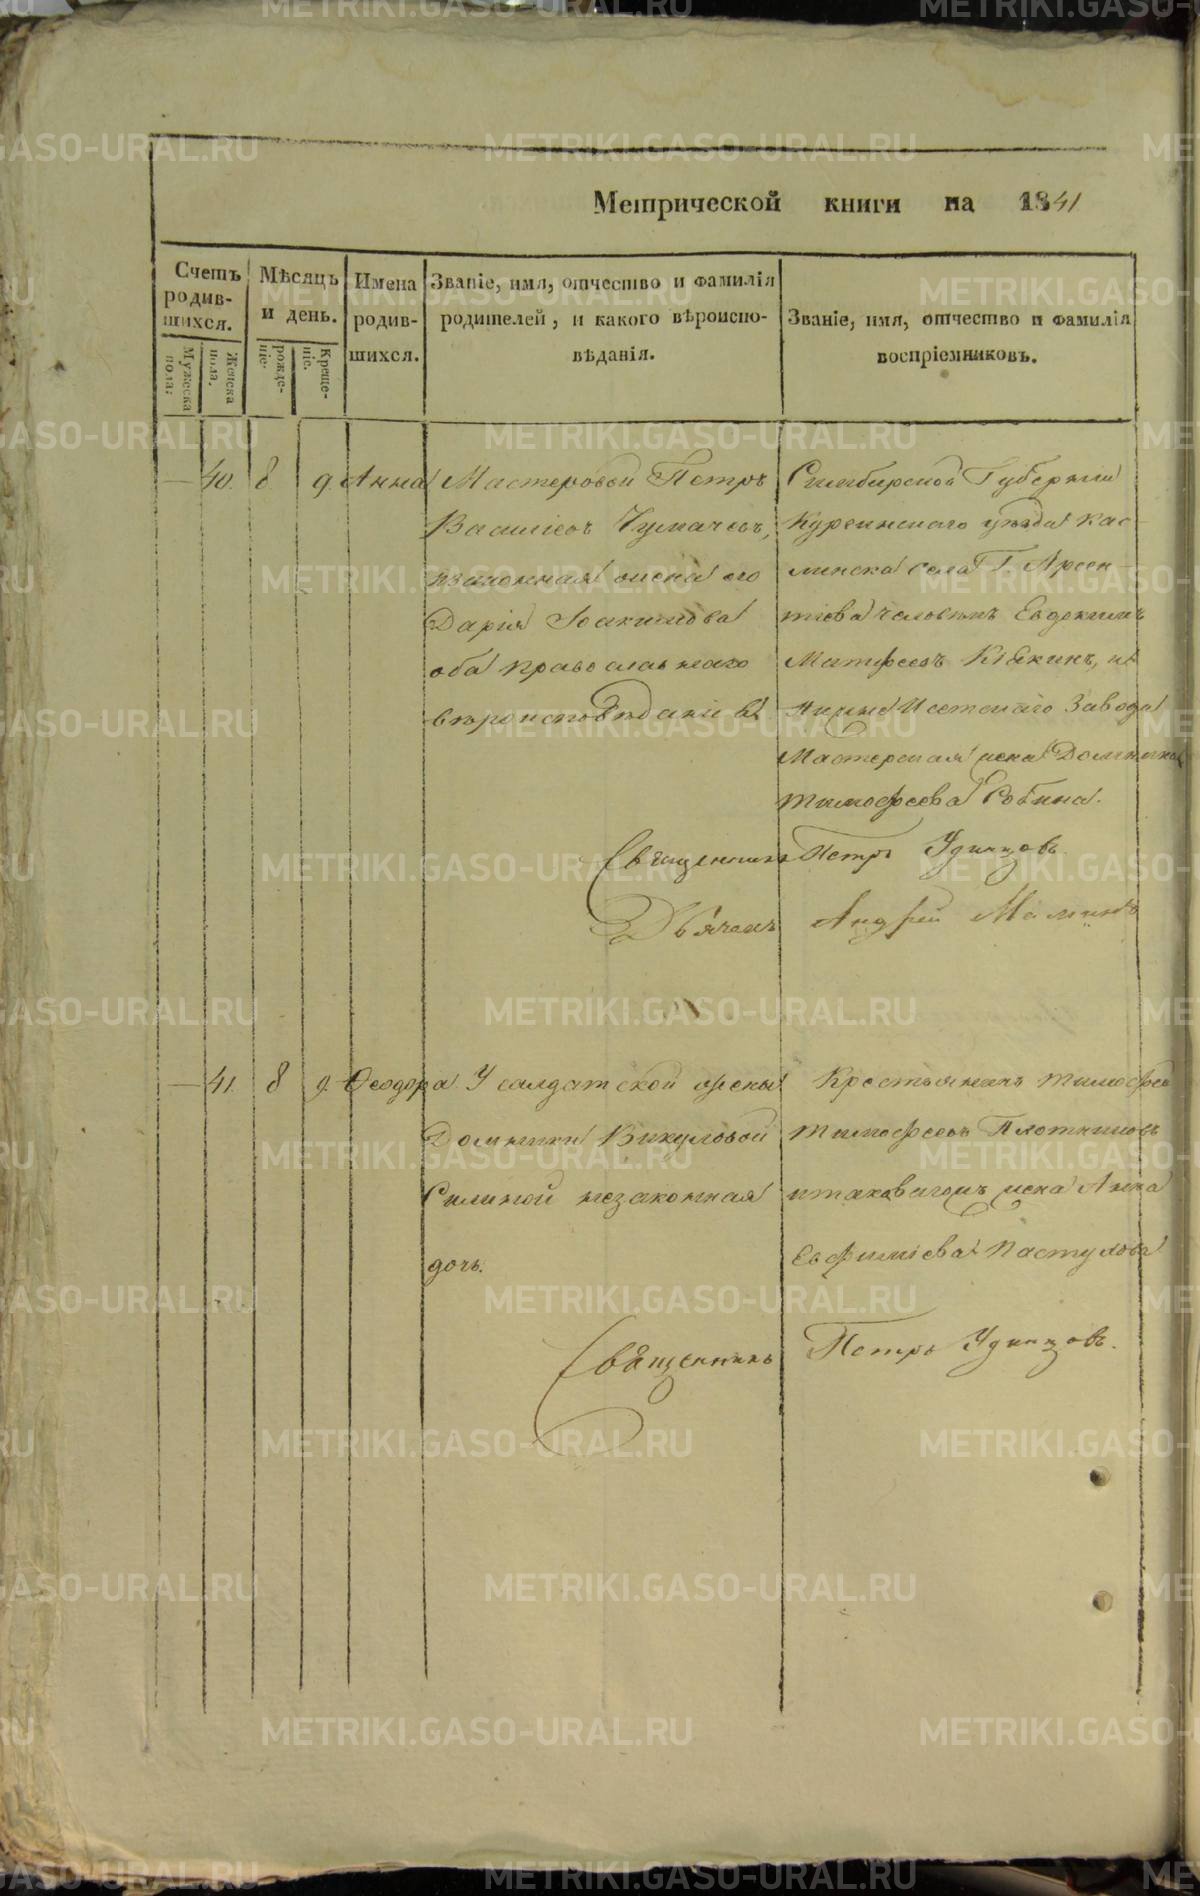 Метрической книги на 1841
Счетъ родив-шихся.
Мужеска пола.
Женска пола.
Мѣсяцъ и день.
рожде-ніе.
Креще-ніе.
Имена родив-шихся.
Званіе, имя, отчество и фамилія
родителей, и какого вѣроиспо-
вѣданія.
Званіе, имя, отчество и фамилія
воспріемниковъ.
— 40. 8. 9. Анна
Мастеровой Петръ
Василіевъ Чумачевъ,
изаконная жена его
Дарія Іоакимова
оба православнаго
вѣроисповѣданія
Симбирской Губерніи
уѣзда
села Г. Арсен-
тьева человѣкъ Евдокимъ
Матфеевъ и
Исетскаго Завода
Мастерская жена Домника
Тимофеева
Священникъ Петръ Удинцовъ.
Дьячекъ Андрей Маминъ
— 41. 8 9. Ѳеодора.
У салдатской жены
Домники Викуловой
Силиной незаконная
дочь.
Крестьянинъ Тимофей
Тимофеевъ Плотниковъ
жена Анна
Евфиміева Пастухова
Священникъ Петръ Удинцовъ.
METRIKI.GASO-URAL.RU